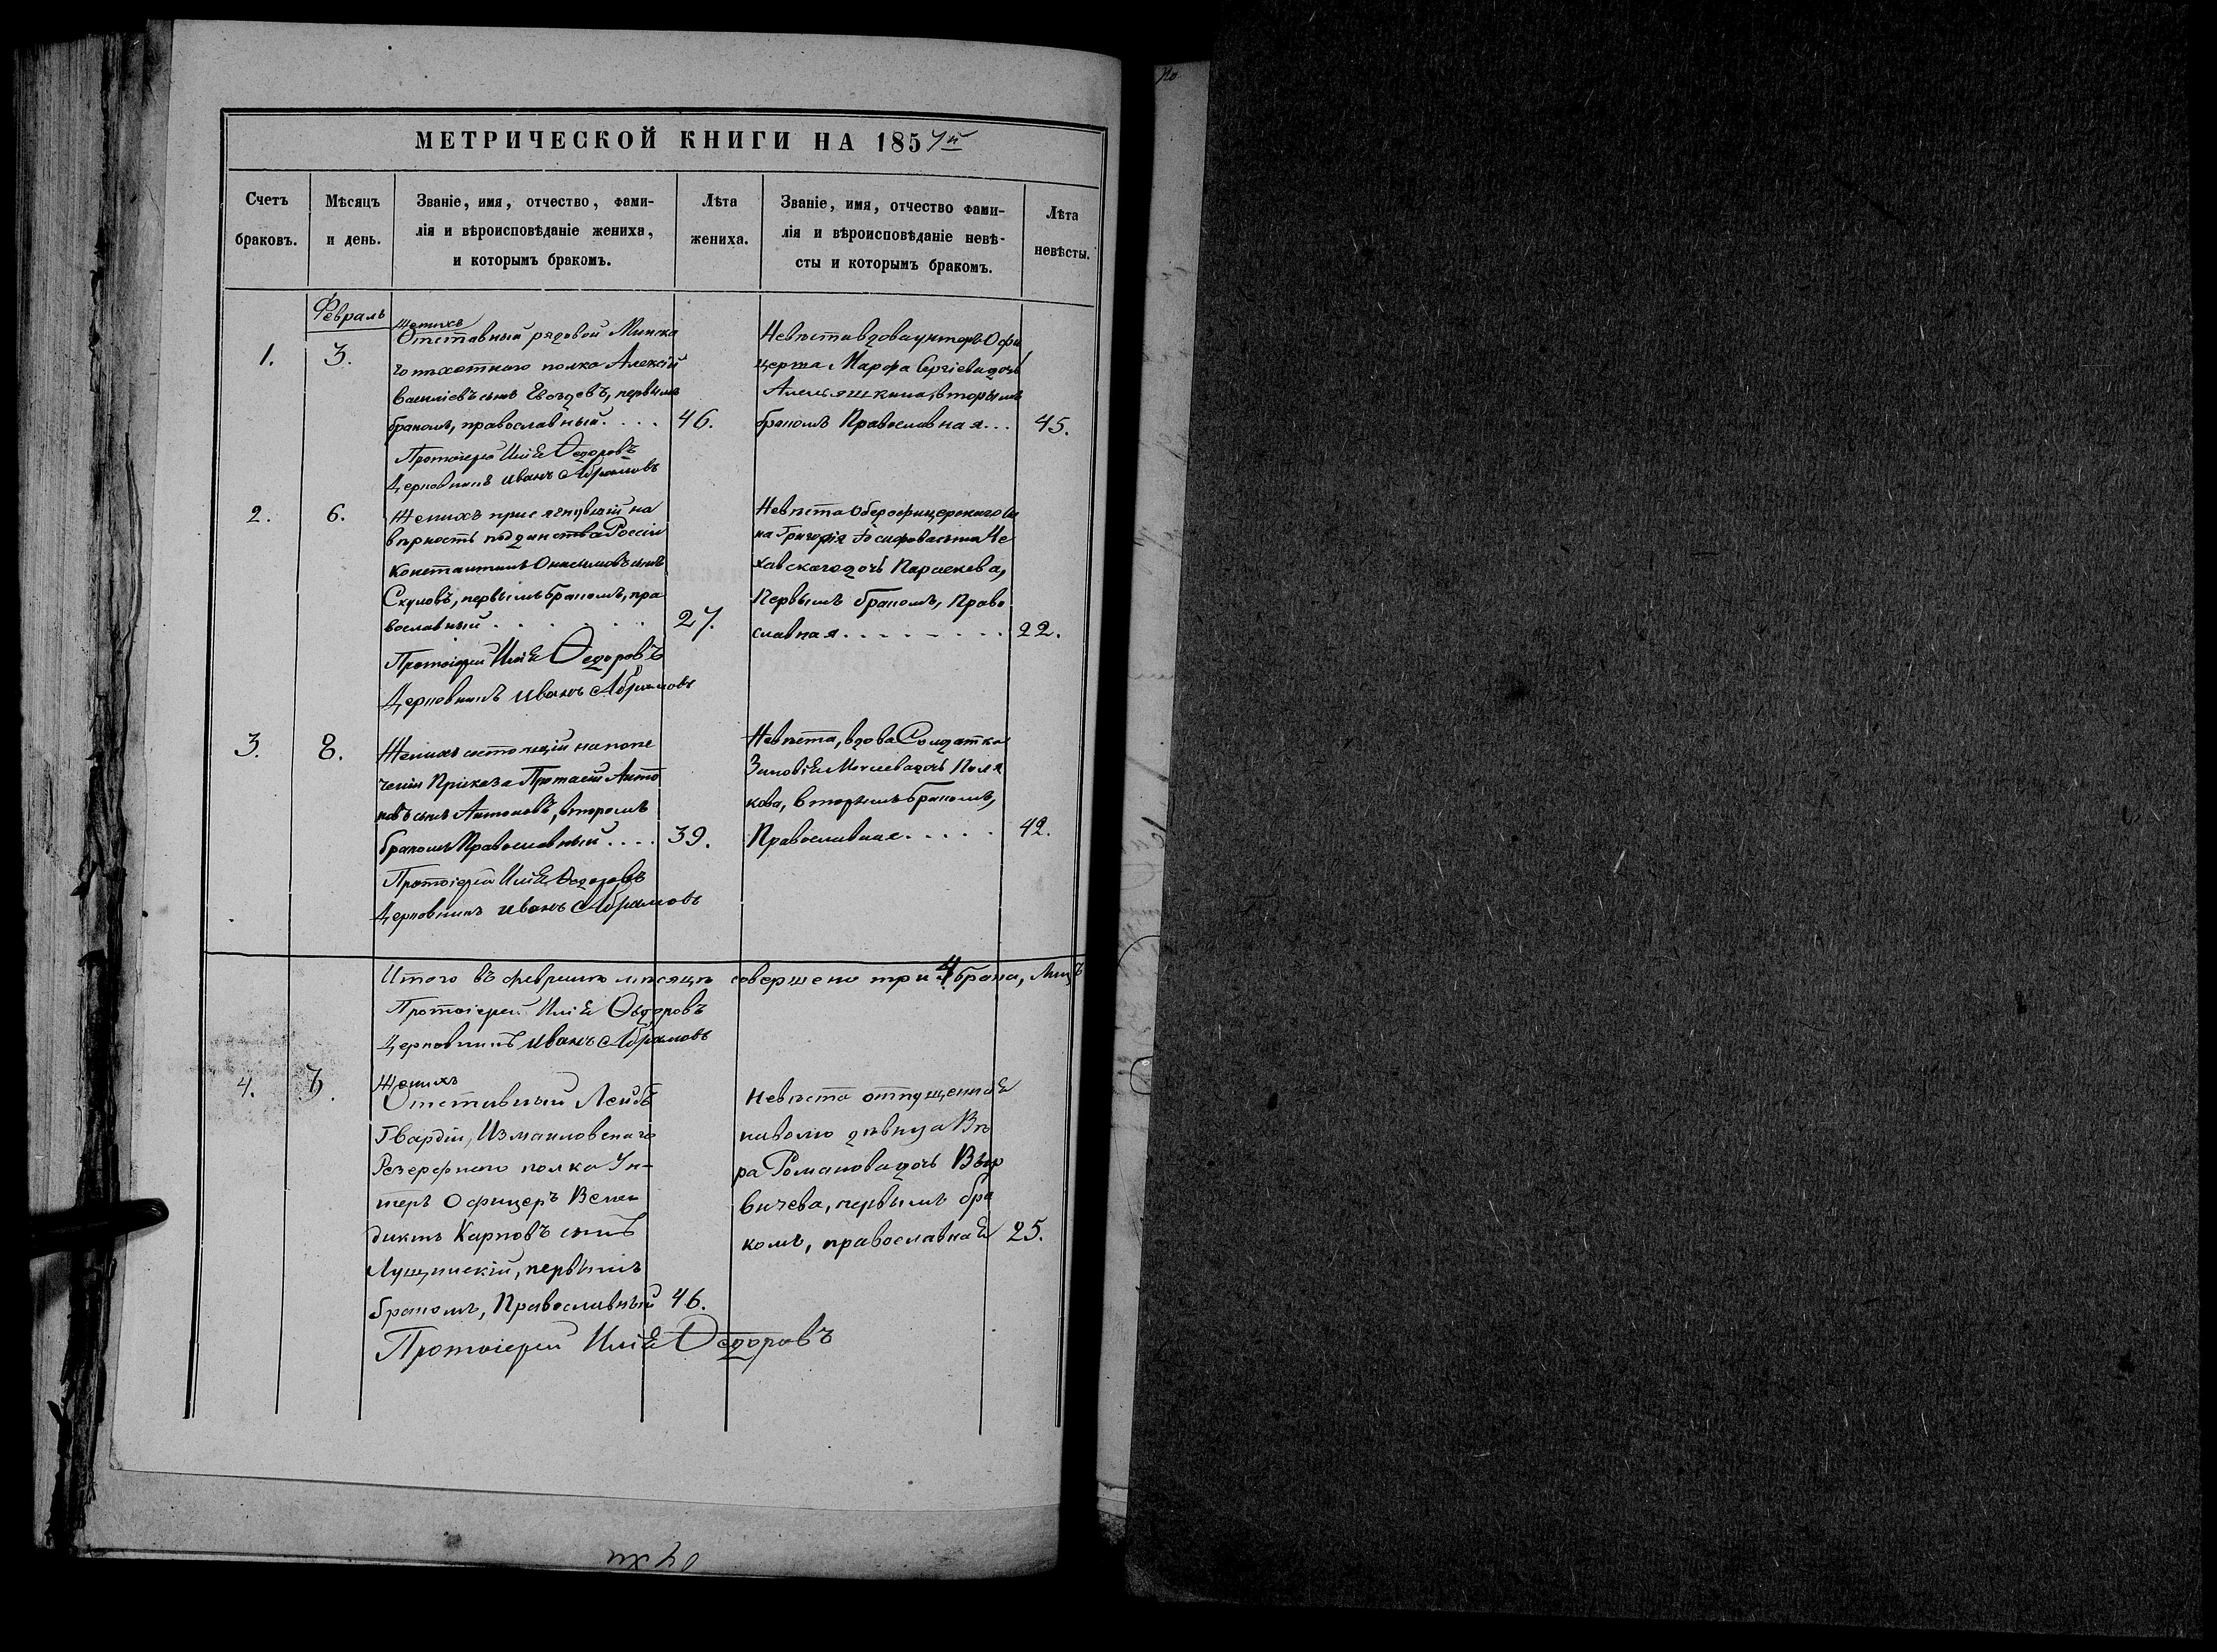 МЕТРИЧЕСКОЙ КНИГИ НА 1857й
Счетъ
браковъ.
Мѣсяцъ
и день.
Званіе, имя, отчество, фами-
лія и вѣроисповѣданіе жениха,
и которымъ бракомъ.
Лѣта
жениха.
Званіе, имя, отчество фами-
лія и вѣроисповѣданіе невѣ-
сты и которымъ бракомъ.
Лѣта
невѣсты.
Февраль
1.
3.
Женихъ
Отставный рядовой Минска
го пѣхотнаго полка Алексѣй
Василіевъ сынъ первымъ
бракомъ, православный. . . .
46.
Протоіерей Илія Ѳедоровъ
Церковникъ Иванъ Абрамовъ
Невѣста вдова унтеръ Офи
церша Марфа Сергіева дочь
вторымъ
бракомъ Православная...
45.
2.
6.
Женихъ присягнувшій на
вѣрность подданства Россіи
Константинъ Онисимовъ сынъ
Скуловъ, первымъ бракомъ, пра
вославный . . . . . .
27.
Протоіерей Илія Ѳедоровъ
Церковникъ Иванъ Абрамовъ
Невѣста Оберофицерскаго сы
на Григорія Іосифова сына Че
хавскаго дочь Параскева,
Первымъ бракомъ, Право
славная . . . . . . . .
22.
3.
8.
Женихъ состоящій на попе
ченіи Приказа Протасій Анто
новъ сынъ Антоновъ, вторымъ
бракомъ Православный . . . .
39.
Протоіерей Илія Ѳедоровъ
Церковникъ Иванъ Абрамовъ
Невѣста, вдова Солдатка
Зиновія дочь Поля
кова, вторымъ бракомъ,
Православная . . . . .
42.
Итого въ февралѣ мѣсяцѣ совершено три 4 брака,
Протоіерей Илія Ѳедоровъ
Церковникъ Иванъ Абрамовъ
4.
Женихъ
Отставный Лейбъ
Гвардіи, Измаиловскаго
Резерфнаго полка Ун-
теръ Офицеръ Вене
диктъ Карповъ сынъ
Лущинскій, первымъ
бракомъ, Православный 46.
Невѣста отпущенная
наволю дѣвица Вѣ
ра Романова дочь
вичева, первымъ бра
комъ, православная 25.
Протоіерей Илія Ѳедоровъ